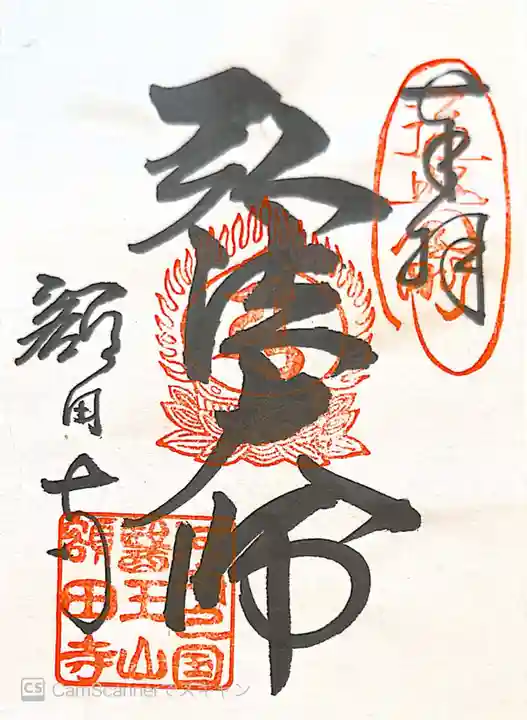 奉拝
弘法大師
額田寺
国
醫王山
額田寺
CS CamScannerでスキャン